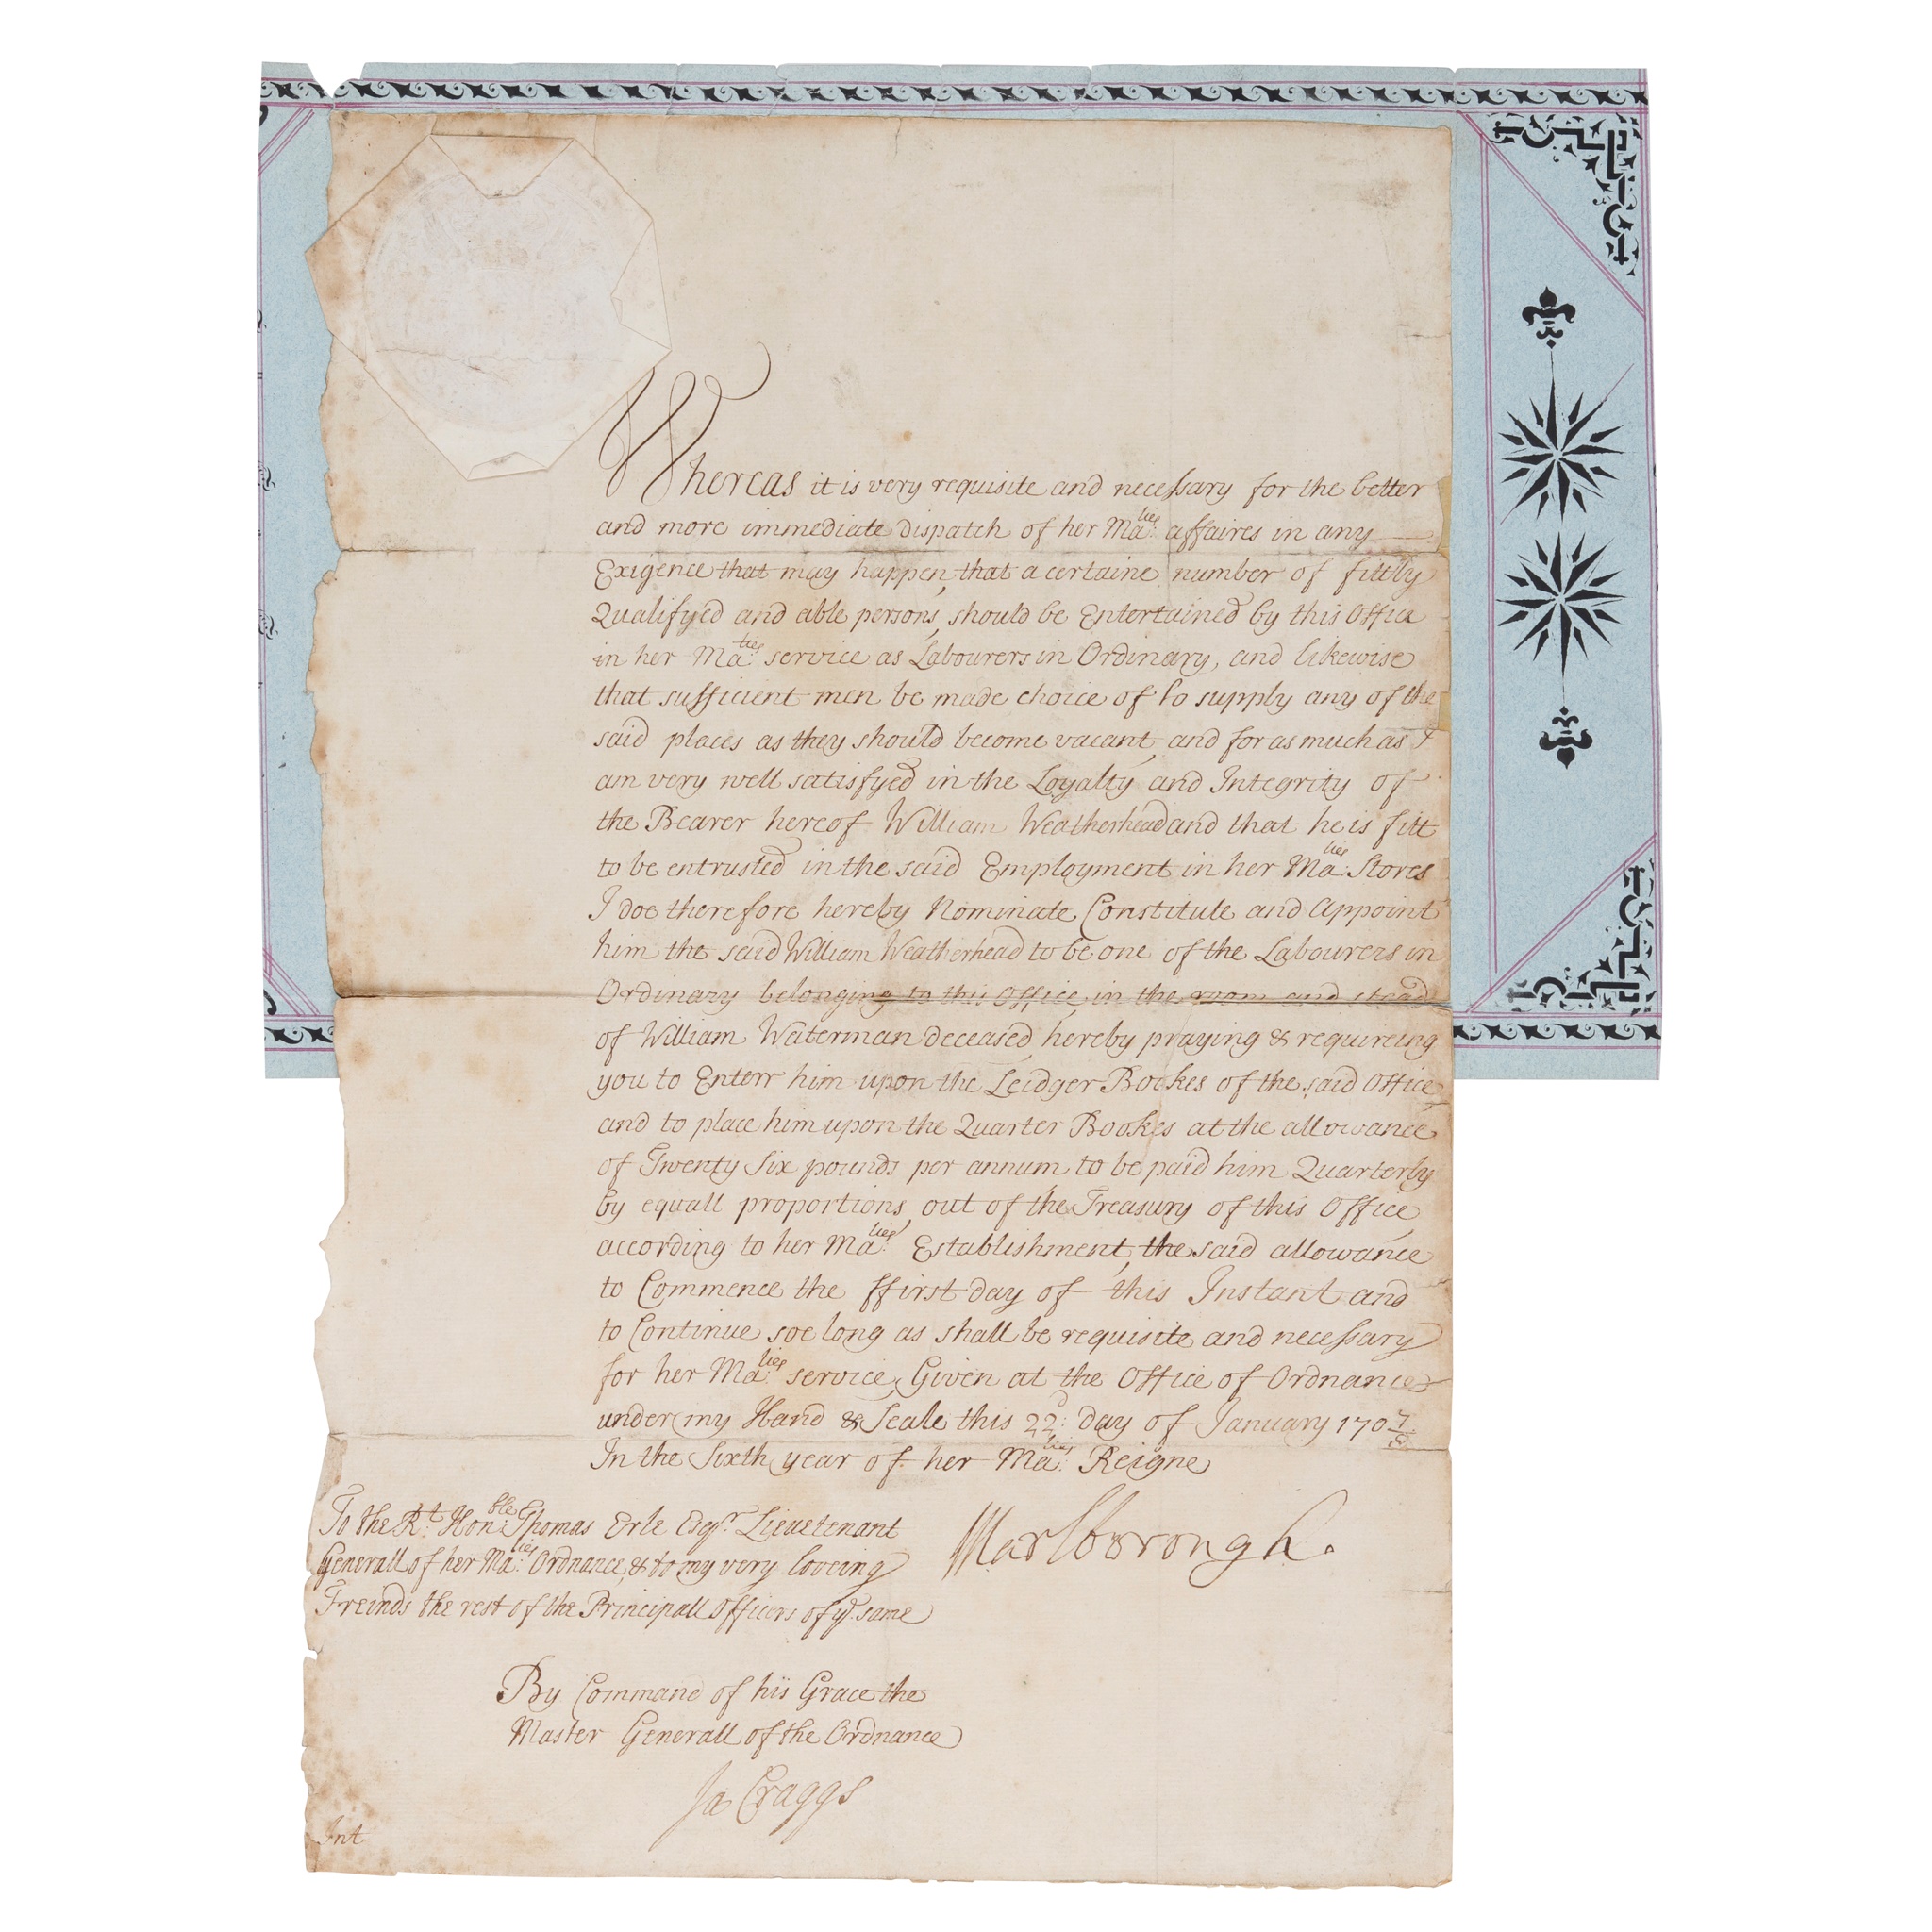 Whereas it is very requisite and necessary for the better
and more immediate dispatch of her Ma:ties affaires in any
Exigence that may happen, that a certaine number of fittly
Qualifyed and able persons, should be Entertained by this Office
in her Ma:ties service as Labourers in Ordinary, and likewise
that sufficient men be made choice of to supply any of the
said places as they should become vacant, and for as much as I
am very well satisfyed in the Loyalty and Integrity of
the Bearer hereof William Weatherhead and that he is fitt
to be entrusted in the said Employment in her Ma:ties Stores
I doe therefore hereby Nominate Constitute and Appoint
him the said William Weatherhead to be one of the Labourers in
Ordinary belonging to this Office, in the room and stead
of William Waterman deceased, hereby praying & requireing
you to Enterr him upon the Leidger Bookes of the said Office,
and to place him upon the Quarter Bookes at the allowance
of Twenty Six pounds per annum to be paid him Quarterly
by equall proportions, out of the Treasury of this Office,
according to her Ma:ties Establishment, the said allowance
to Commence the ffirst day of this Instant and
to Continue soe long as shall be requisite and necessary
for her Ma:ties service, Given at the Office of Ordnance
under my Hand & Seale this 22:d day of January 170 7/8
In the Sixth year of her Ma:ties Reigne
To the R:t Hon:ble Thomas Erle Esq:r Lieutenant
Generall of her Ma:ties Ordnance, & to my very loveing
Freinds the rest of the Principall Officers of y:e same
Marlborough.
By Command of his Grace the
Master Generall of the Ordnance
Ja Craggs
Int